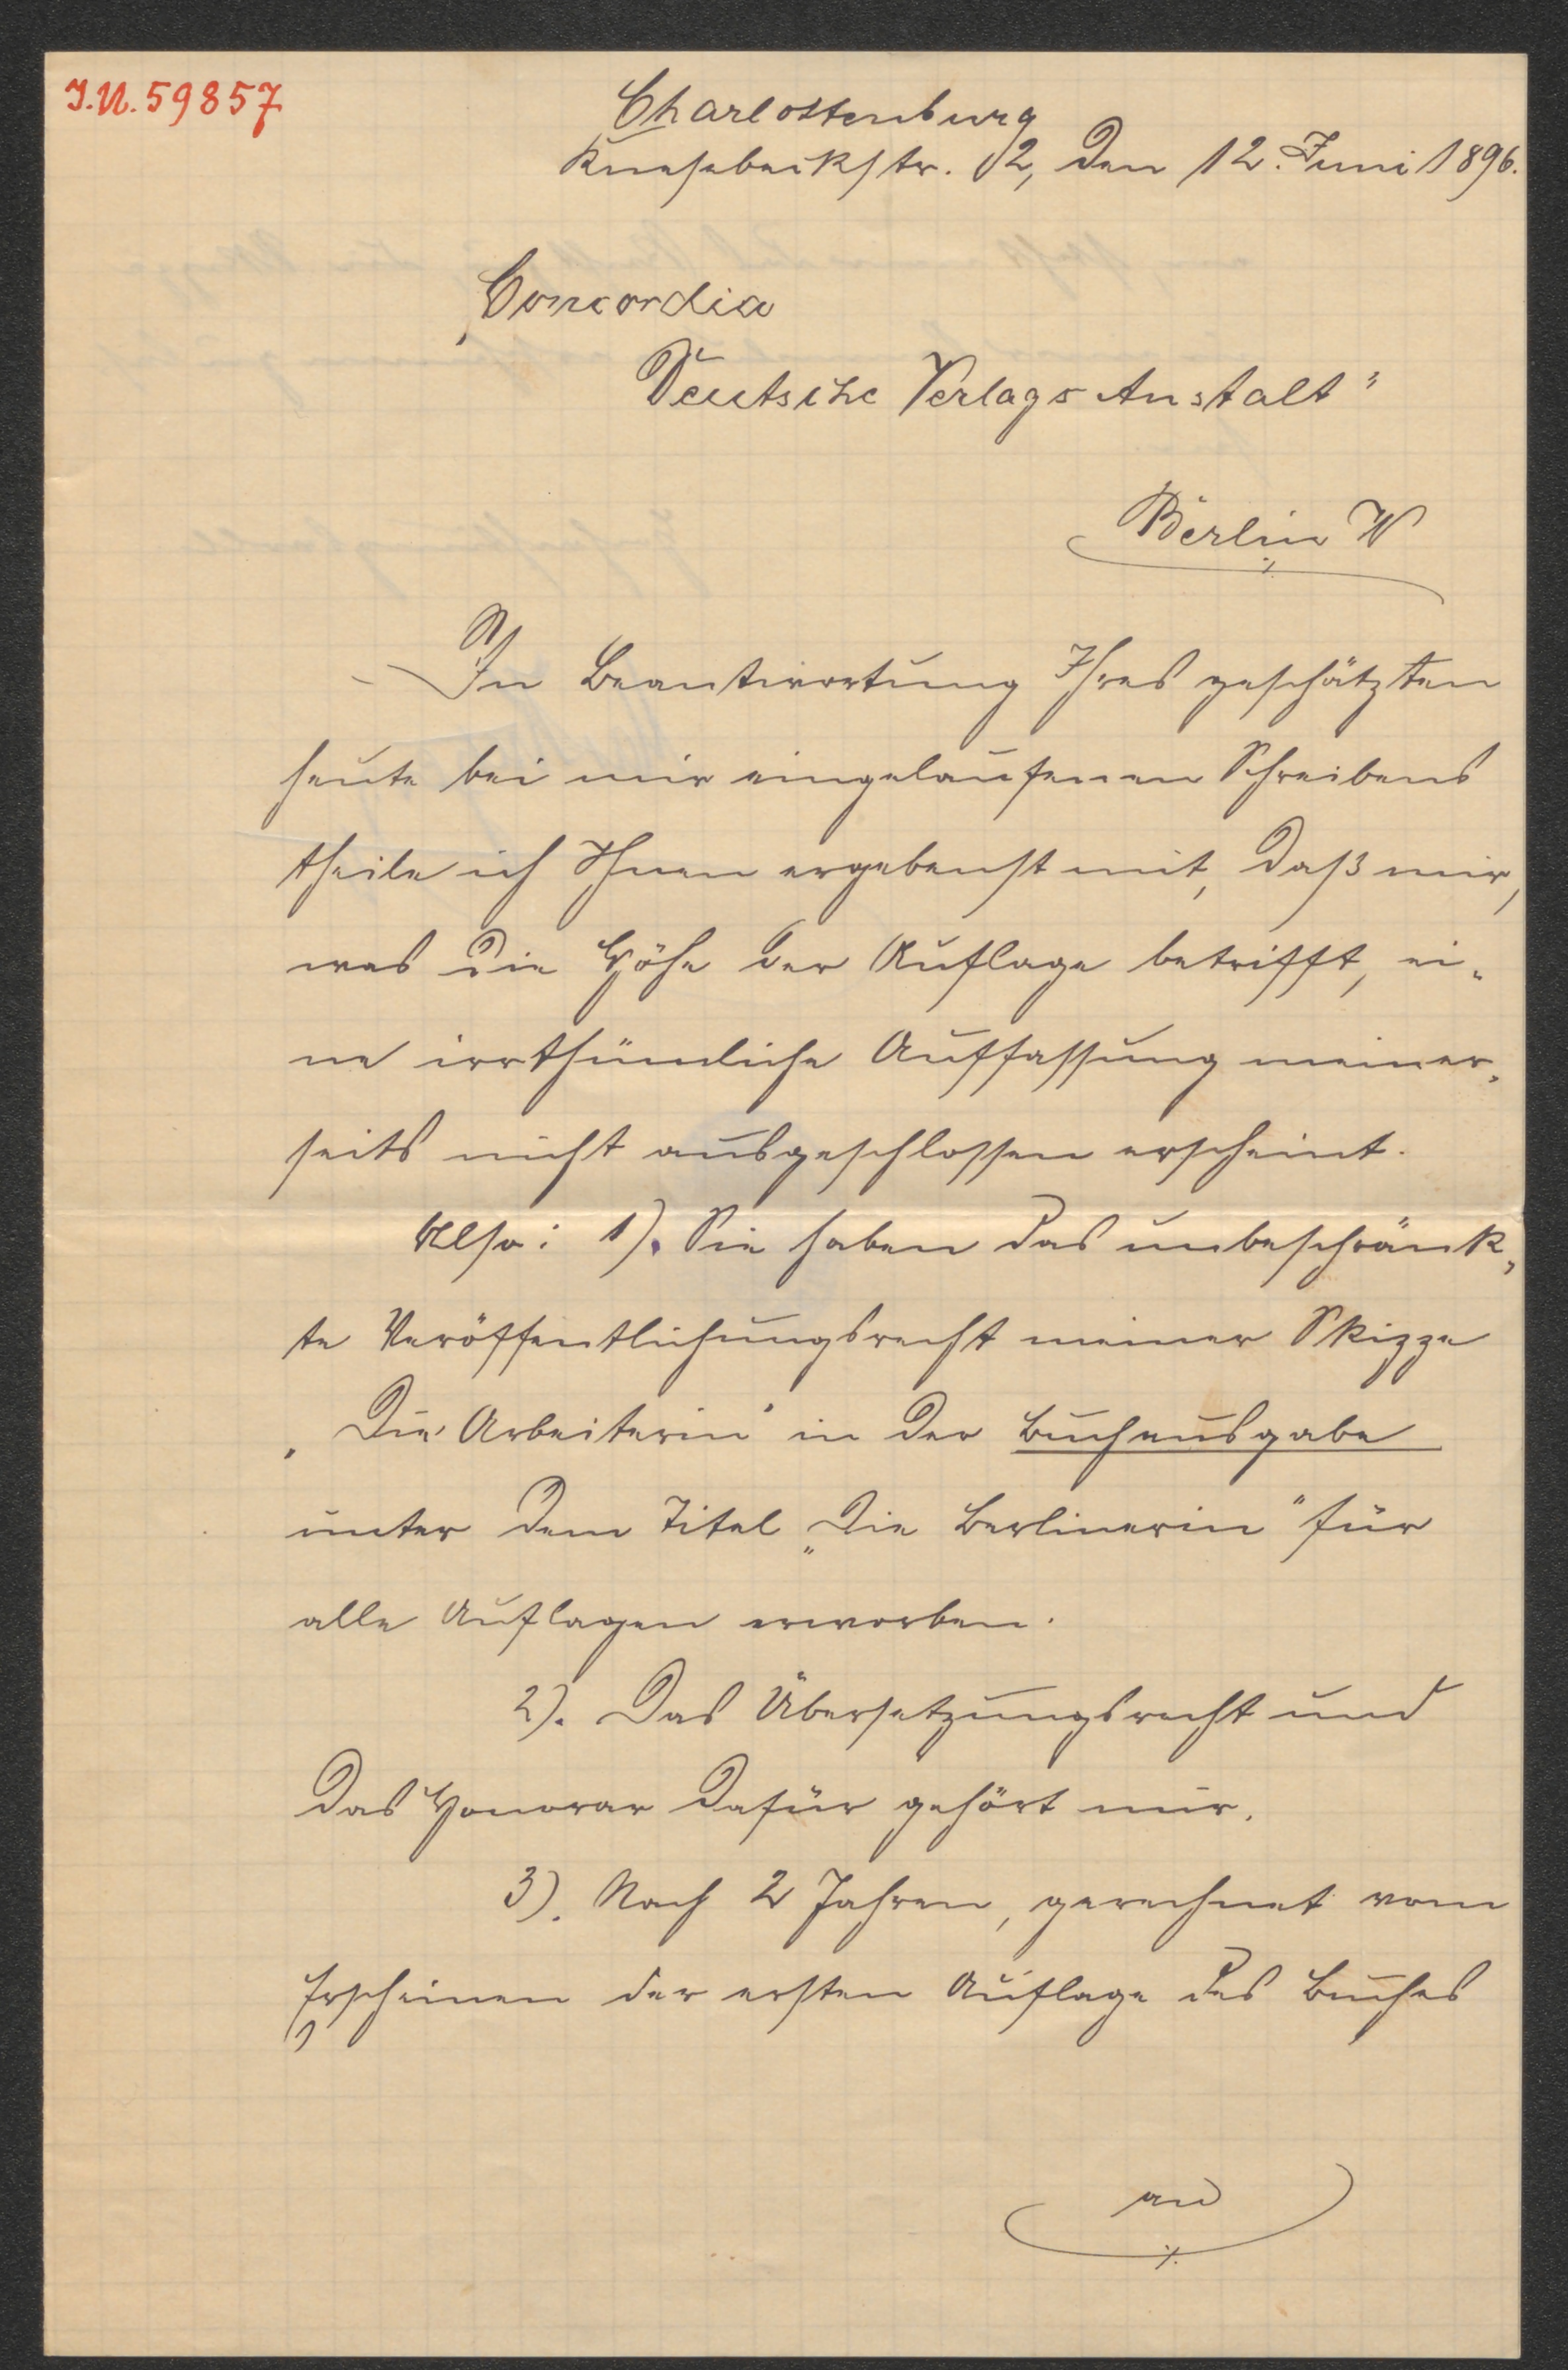 J.N. 59857
Charlottenburg
Knesebeckstr. 12, den 12. Juni 1896.
„Concordia
Deutsche Verlags Anstalt"
Berlin W
In Beantwortung Ihres geschätzten
heute bei mir eingelaufenen Schreibens
theile ich Ihnen ergebenst mit, daß mir,
was die Höhe der Auflage betrifft, ei-
ne irrthümliche Auffassung meiner-
seits nicht ausgeschlossen erscheint.
Also: 1). Sie haben das unbeschränk-
te Veröffentlichungsrecht meiner Skizze
„Die Arbeiterin" in der Buchausgabe
unter dem Titel „Die Berlinerin" für
alle Auflagen erworben.
2). Das Übersetzungsrecht und
das Honorar dafür gehört mir.
3). Nach 2 Jahren, gerechnet vom
Erscheinen der ersten Auflage des Buches
an